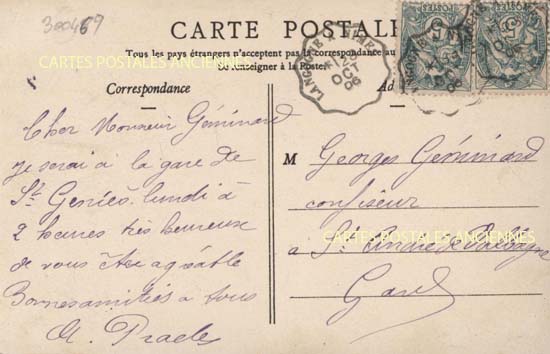 300469
CARTE POSTALE
Tous les pays étrangers n'acceptent pas la correspondance au
Se renseigner à la Poste.
CARTES POSTALES ANCIENNES
Correspondance
Ad
LANGOGNE
OCT
06
Cher Monsieur Géminard
je serai à la gare de
St Geniès lundi à
2 heures très heureux
de vous être agréable
Bonnes amitiés a tous
M Georges Géminard
confiseur
CARTES POSTALES ANCIENNES
a St André de
Gard